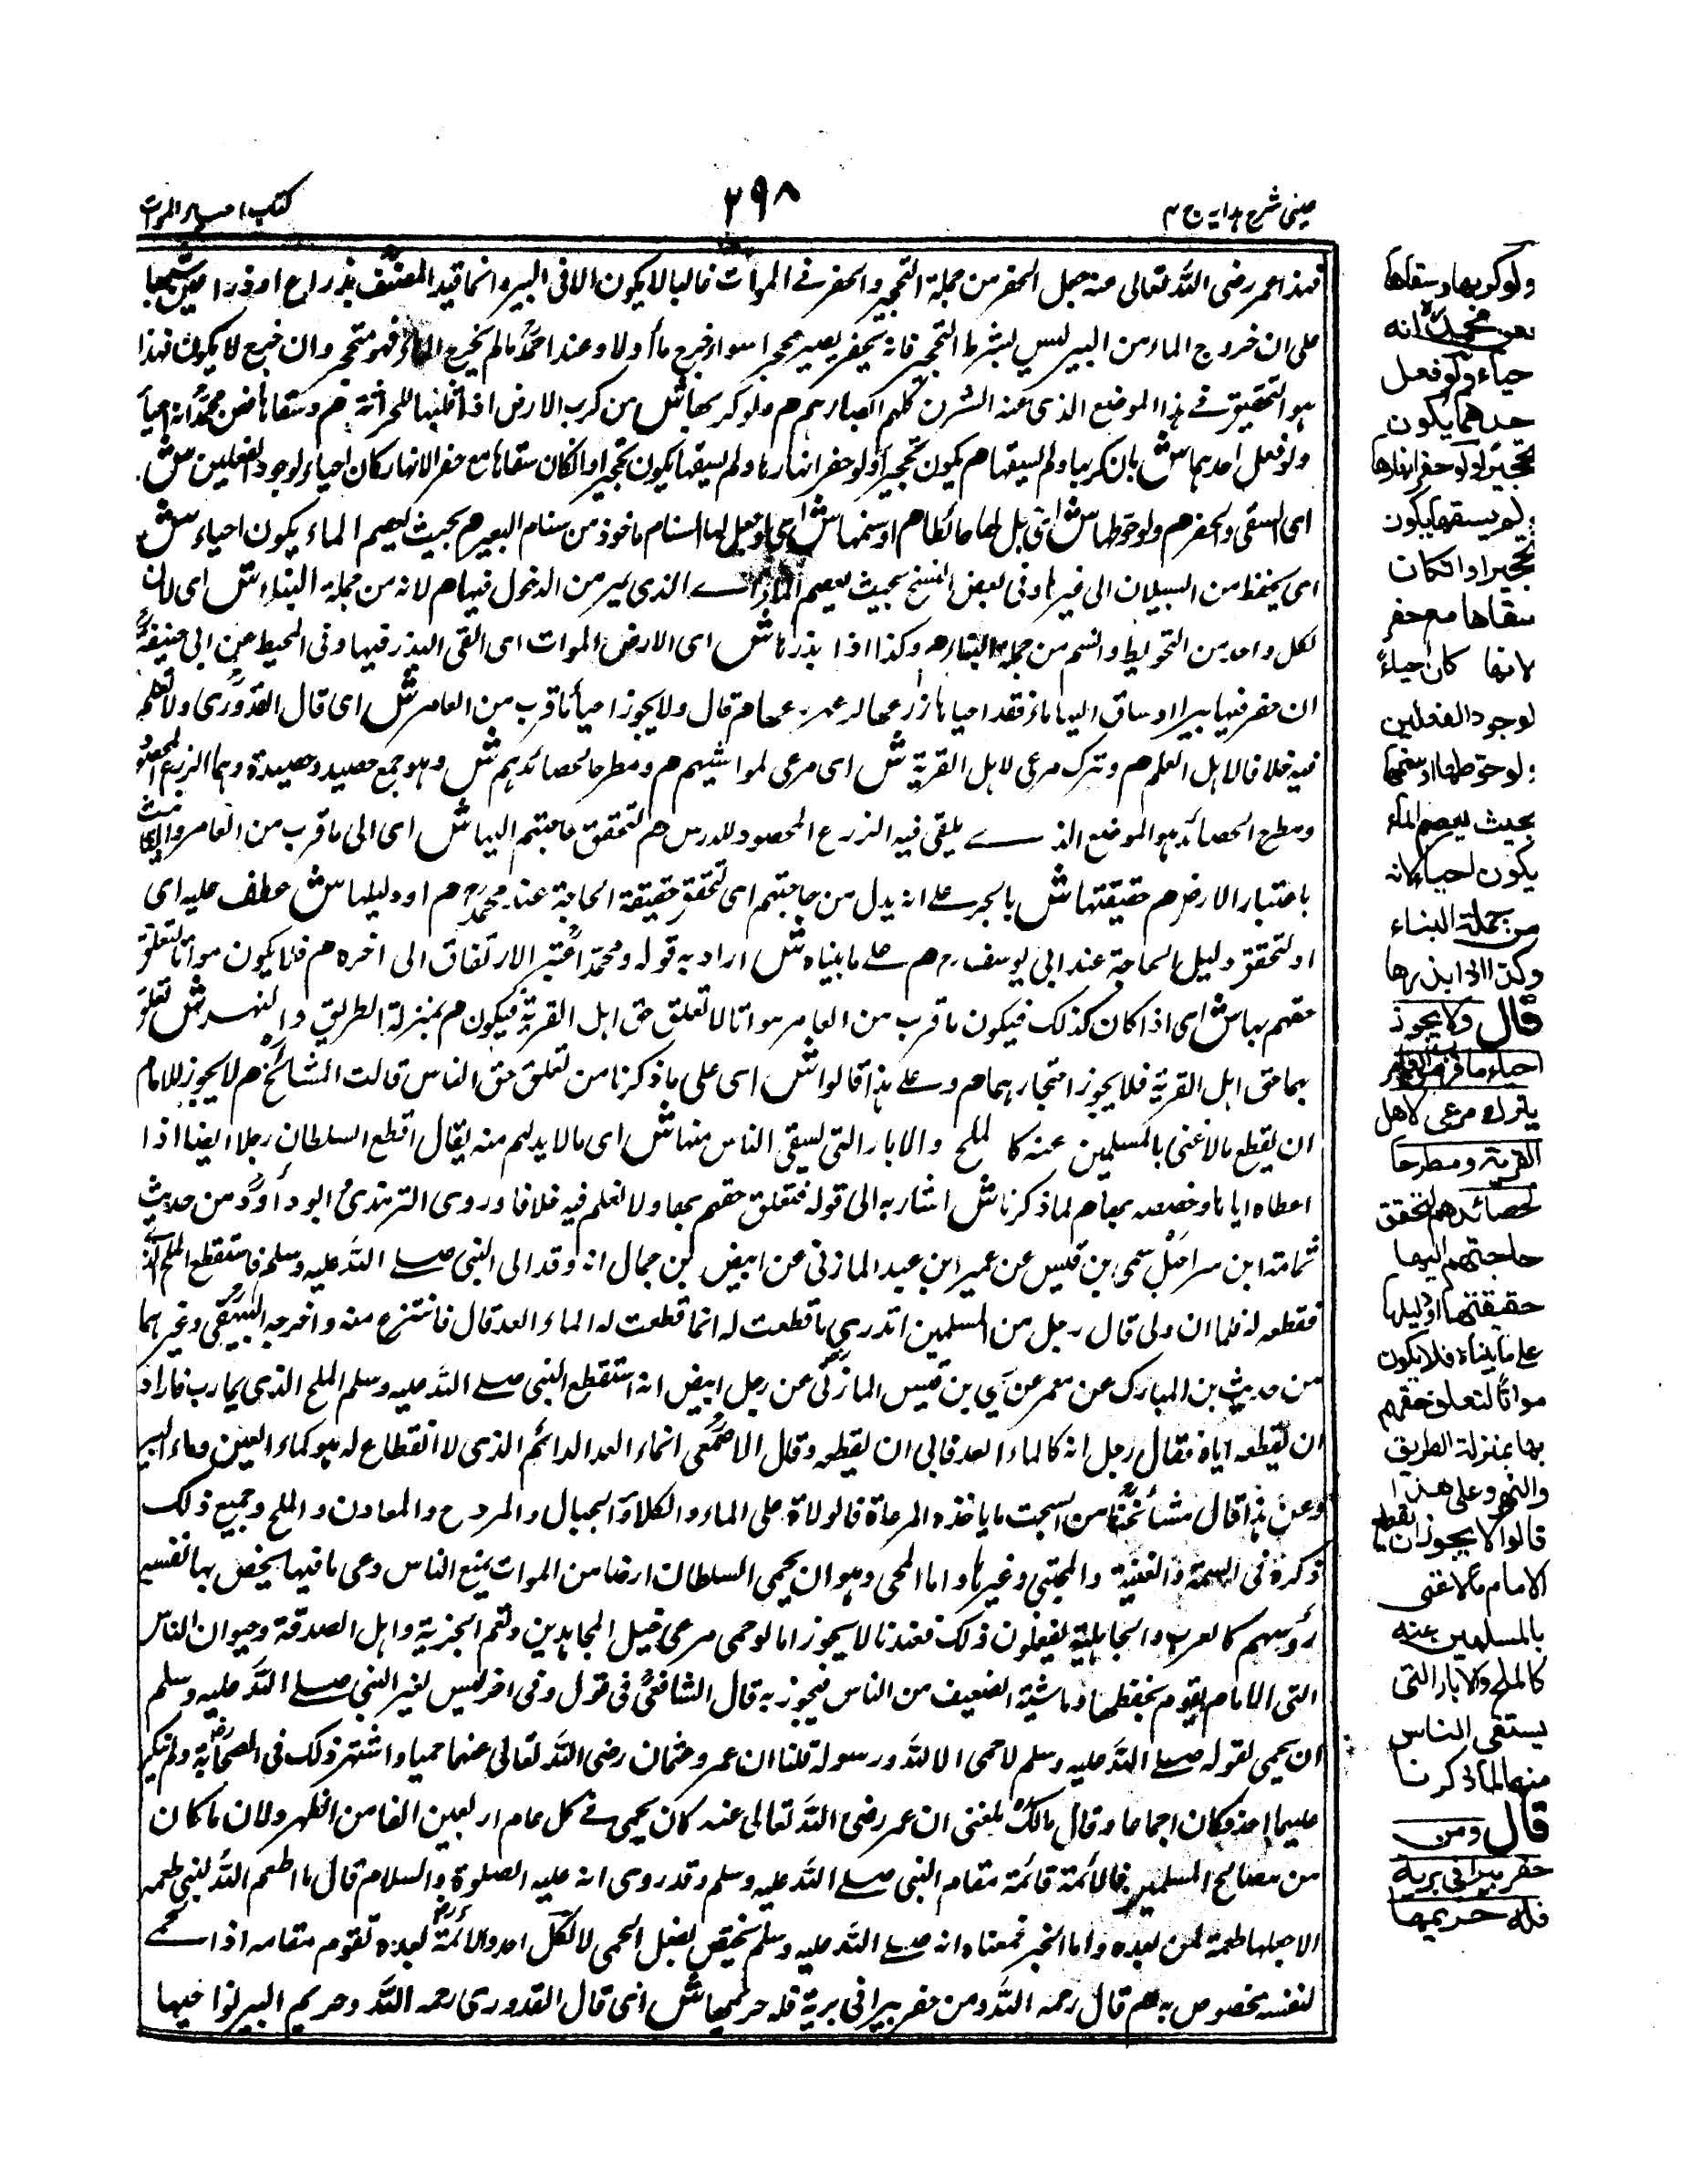 عینی شرح هدایہ ج ۴
۲۹۸
کتاب احیاء الموات
فهذا عمر رضی اللہ تعالی عنه جعل الحفر من جملة التحجیر والحفر فی الموات غالبا لا یکون الا فی البیر وانما قید المصنف بذراع او ذراعین تنبیها
علی ان خروج الماء من البیر لیس بشرط التحجیر فانه بحفر یصیر محجرا سواء خرج ماء اولا وعند احمد مالم یخرج الماء فهو متحجر وان خرج لا یکون فهذا
هو التحقیق فی هذا الموضع الذی عنه الشرن کلهم ابصارهم هم ولو کربها ش من کرب الارض اذا قلبها للحراثة هم وسقاها فعن محمد انه احیاء
ولو فعل احدهما ش بان کربها ولم یسقها هم یکون تحجیرا ولو حفر انهارها ولم یسقها یکون تحجیرا وانکان سقاها مع حفر الانهار کان احیاء لوجود الفعلین ش
ای السقی والحفر هم ولو حوطها ش ای جعل لها حائطا هم او سنمها ش ای جعل لها السنام ماخوذ من سنام البعیر هم بحیث یعصم الماء یکون احیاء ش
ای یحفظ من السیلان الی غیرها وفی بعض النسخ بحیث یعصم الماء ای الذی یمر من الدخول فیها هم لانه من جملة البناء ش ای لان
لکل واحد من التحویط والسنم من جملة البناء هم وکذا اذا بذرها ش ای الارض الموات ای القی البذر فیها وفی المحیط عن ابی حنیفة
ان حفر فیها بیرا او ساق الیها ماء فقد احیاها زرعها او لم یزرعها هم قال ولا یجوز احیاء ما قرب من العامر ش ای قال القدوری ولا نعلم
فیه خلافا لاهل العلم هم ویترک مرعی لاهل القریة ش ای مرعی لمواشیهم هم ومطرحا لحصائدهم ش وهو جمع حصید وحصیدة وهما الزرع المحصود
ومطرح الحصائد هو الموضع الذی یلقی فیه الزرع المحصود للدرس هم لتحقق حاجتهم الیها ش ای الی ما قرب من العامر والتانیث
باعتبار الارض هم حقیقتها ش بالجر علی انه بدل من حاجتهم ای لتحقق حقیقة الحاجة عند محمد هم او دلیلها ش عطف علیه ای
او لتحقق دلیل الحاجة عند ابی یوسف رح هم علی ما بیناه ش اراد به قوله ومحمد اعتبر الارتفاق الی اخره هم فلا یکون مواتا لتعلق
حقهم بها ش ای اذا کان کذلک فیکون ما قرب من العامر مواتا لا تعلق حق اهل القریة فیکون هم بمنزلة الطریق والنهر ش تعلق
بهما حق اهل القریة فلا یجوز احتجارهما هم وعلی هذا قالوا ش ای علی ما ذکرنا من تعلق حق الناس قالت المشائخ هم لا یجوز للامام
ان یقطع ما لا غنی بالمسلمین عنه کا لملح والابار التی یسقی الناس منها ش ای ما لا بد لهم منه یقال اقطع السلطان رجلا ارضا اذا
اعطاه ایاها وخصصه بها هم لما ذکرنا ش اشار به الی قوله فتعلق حقهم بها ولا نعلم فیه خلافا وروی الترمذی وابو داود من حدیث
ثمامة ابن سراحیل سمی بن قیس عن عمیر ابن عبد المازنی عن ابیض بن جمال انه وفد الی النبی صلے اللہ علیه وسلم فاستقطع الملح الذی
فقطعه له فلما ان ولی قال رجل من المسلمین اتدری ما قطعت له انما قطعت له الماء العد قال فانتزع منه واخرجه البیهقی وغیرهما
من حدیث بن المبارک عن معمر عن یحیی بن قیس المازنی عن رجل ابیض انه استقطع النبی صلے اللہ علیه وسلم الملح الذی بمارب فاراد
ان یقطعه ایاه فقال رجل انه کالماء العد فابی ان یقطعه وقال الاصمعی انماء العد الدائم الذی لا انقطاع له هو کماء العین وماء البیر
وعن هذا قال مشائخنا من السحت ما یاخذه المرعاة فالولاة علی الماء والکلأ والجبال والمروح والمعادن والملح وجمیع ذلک
ذکره فی التتمة والغنیة والمجتبی وغیرها واما الحمی وهو ان یحمی السلطان ارضا من الموات یمنع الناس رعی ما فیها یختص بها نفسه
رؤسهم کالعرب والجاهلیة یفعلون ذلک فعندنا لا یجوز اما لو حمی مرعی خیل المجاهدین ونعم الجزیة وابل الصدقة وحیوان الناس
التی الامام یقوم بحفظها وماشیة الضعیف من الناس فیجوز به قال الشافعی فی قول وفی اخر لیس لغیر النبی صلے اللہ علیه وسلم
ان یحمی لقوله صلے اللہ علیه وسلم لاحمی الا للہ ورسوله قلنا ان عمر وعثمان رضی اللہ تعالی عنهما حمیا واشتهر ذلک فی الصحابة ولم ینکر
علیهما احد فکان اجماعا وقال مالک بلغنی ان عمر رضی اللہ تعالی عنه کان یحمی فی کل عام اربعین الفا من الظهر ولان ما کان
من مصالح المسلمین فالائمة قائمة مقام النبی صلے اللہ علیه وسلم وقد روی انه علیه الصلوة والسلام قال ما اطعم اللہ لنبی طعمة
الا جعلها طعمة لمن بعده واما الخبر فمعناه انه صلے اللہ علیه وسلم یختص بفعل الحمی لا لکل احد والائمة بعده تقوم مقامه اذا حمی
لنفسه مخصوص به هم قال رحمه اللہ ومن حفر بیرا فی بریة فله حریمها ش ای قال القدوری رحمه اللہ وحریم البیر نواحیها
ولو کربها وسقاها
فعن محمد انه
احیاء ولو فعل
احدهما یکون
تحجیرا ولو حفر انهارها
ولم یسقها یکون
تحجیرا وانکان
سقاها مع حفر
لانها کان احیاء
لوجود الفعلین
ولو حوطها او سنمها
بحیث یعصم الماء
یکون احیاء لانه
من جملة البناء
وکذا اذا بذرها
قال ولا یجوز
احیاء ما قرب من العامر
یترک مرعی لاهل
القریة ومطرحا
لحصائدهم لتحقق
حاجتهم الیها
حقیقتها او دلیلها
علی ما بیناه فلا یکون
مواتا لتعلق حقهم
بها بمنزلة الطریق
والنهر وعلی هذا
قالوا لا یجوز ان یقطع
الامام مالا غنی
بالمسلمین عنه
کالملح والابار التی
یستقی الناس
منها لما ذکرنا
قال ومن
حفر بیرا فی بریة
فله حریمها